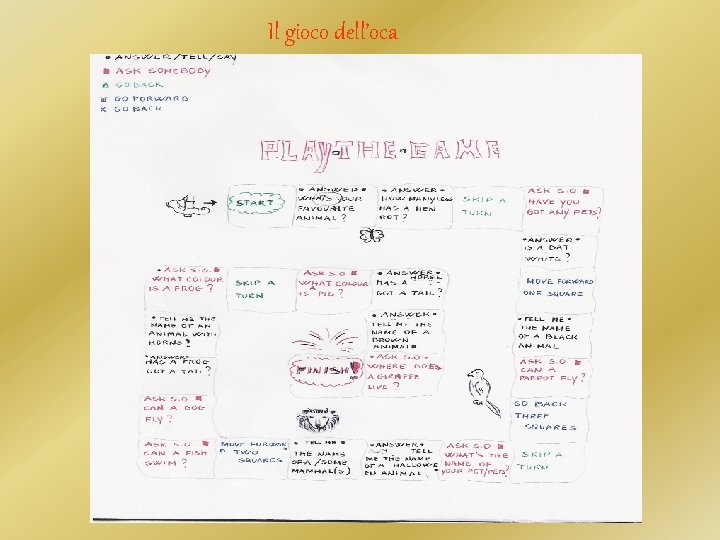 Il gioco dell'oca
• ANSWER/TELL/SAY
ASK SOMEBODY
GO BACK
GO FORWARD
X GO BACK
PLAY-THE-GAME
START
• ANSWER •
WHAT'S YOUR
FAVOURITE
ANIMAL?
• ANSWER •
HOW MANY LEGS
HAS A HEN
GOT?
SKIP A
TURN
ASK S.O.
HAVE YOU
GOT ANY PETS?
• ANSWER •
IS A BAT
WHITE?
MOVE FORWARD
ONE SQUARE
• TELL ME •
THE NAME
OF A BLACK
ANIMAL
ASK S.O.
CAN A
PARROT FLY?
GO BACK
THREE
SQUARES
SKIP A
TURN
ASK S.O.
WHAT'S THE
NAME OF
YOUR PET/PETS?
• ANSWER •
TELL
ME THE NAME
OF A HALLOWE
EN ANIMAL.
• TELL ME •
THE NAME
OF A/SOME
MAMMAL(S)
MOVE FORWARD
TWO
SQUARES
ASK S.O.
CAN A FISH
SWIM?
ASK S.O.
CAN A DOG
FLY?
• ANSWER •
HAS A FROG
GOT A TAIL?
• TELL ME THE
NAME OF AN
ANIMAL WITH
HORNS?
• ASK S.O.
WHAT COLOUR
IS A FROG?
SKIP A
TURN
ASK S.O.
WHAT COLOUR
IS A PIG?
• ANSWER •
HAS A
GOT A TAIL?
• ANSWER •
TELL ME THE
NAME OF A
BROWN
ANIMAL
• ASK S.O •
WHERE DOES
A GIRAFFE
LIVE?
FINISH!